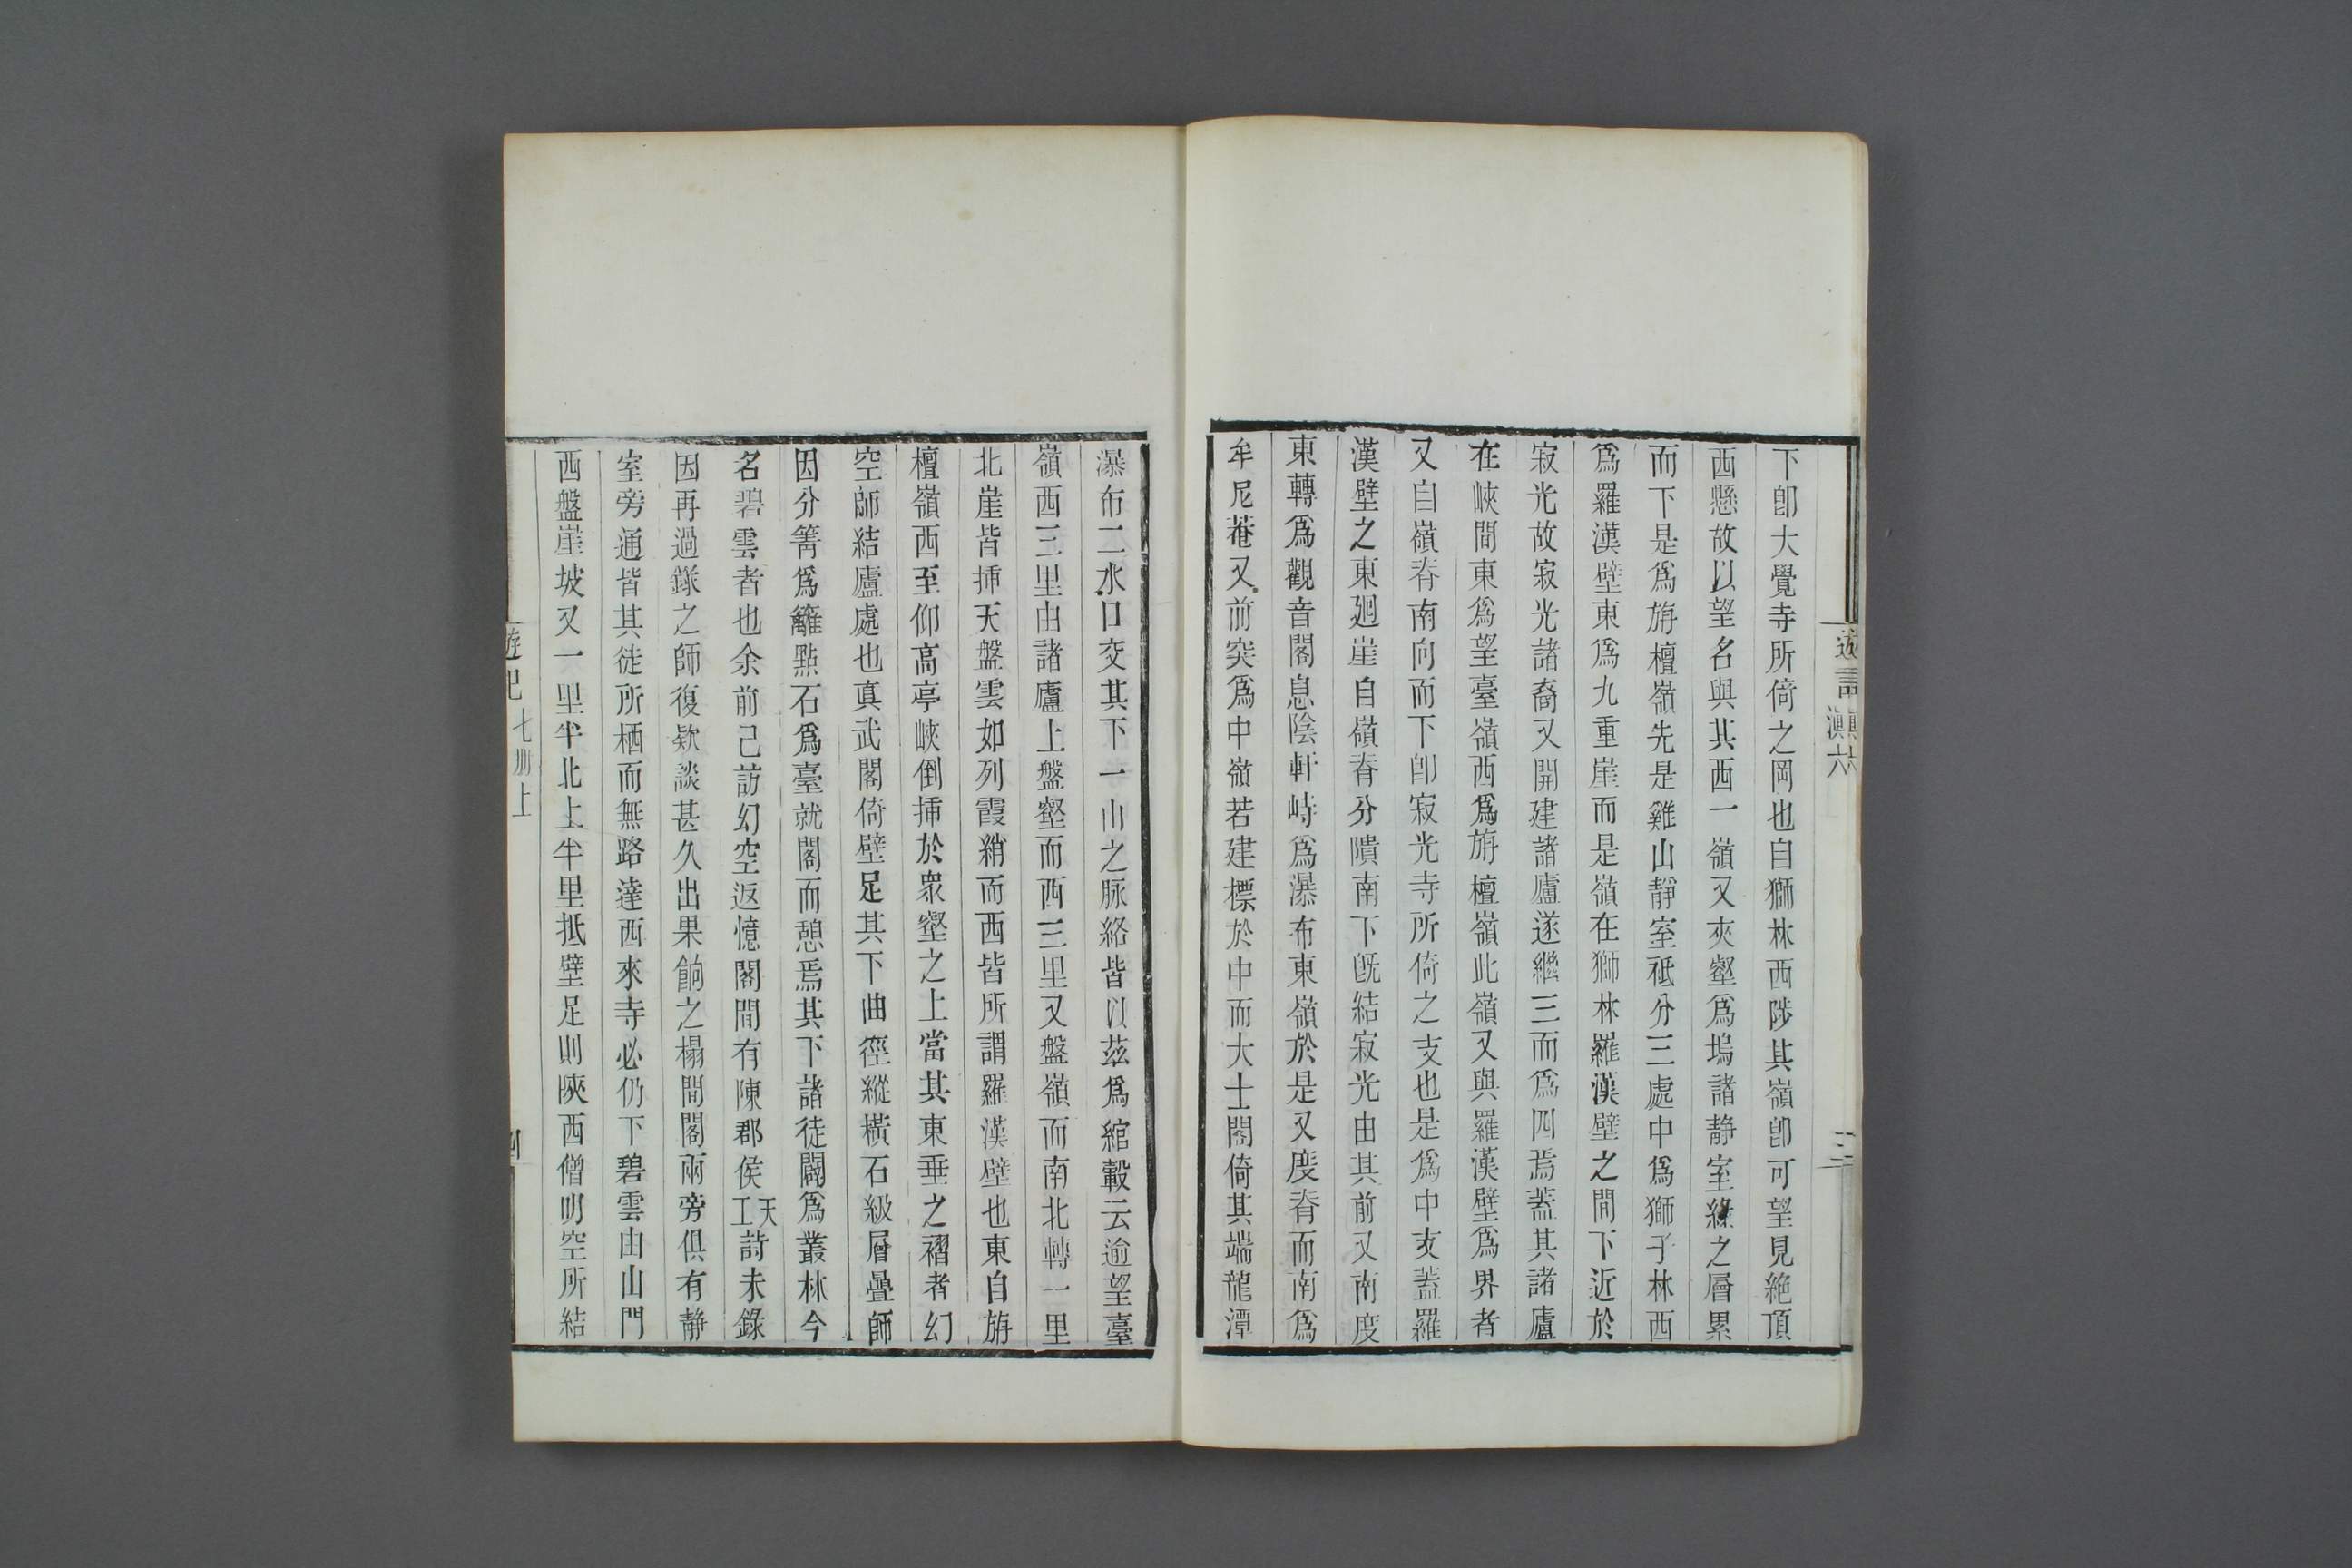 遊記滇六
三
下卽大覺寺所倚之岡也自獅林西陟其嶺卽可望見絶頂
西懸故以望名與其西一嶺又夾壑爲塢諸静室緣之層累
而下是爲旃檀嶺先是雞山靜室祗分三處中爲獅子林西
爲羅漢壁東爲九重崖而是嶺在獅林羅漢壁之間下近於
寂光故寂光諸裔又開建諸廬遂繼三而爲四焉蓋其諸廬
在峽間東爲望臺嶺西爲旃檀嶺此嶺又與羅漢壁爲界者
又自嶺脊南向而下卽寂光寺所倚之支也是爲中支蓋羅
漢壁之東廻崖自嶺脊分隤南下旣結寂光由其前又南度
東轉爲觀音閣息陰軒峙爲瀑布東嶺於是又度脊而南爲
牟尼菴又前突爲中嶺若建標於中而大士閣倚其端龍潭
瀑布二水口交其下一山之脉絡皆以茲爲綰轂云逾望臺
嶺西三里由諸廬上盤壑而西三里又盤嶺而南北轉一里
北崖皆揷天盤雲如列霞綃而西皆所謂羅漢壁也東自旃
檀嶺西至仰高亭峽倒揷於衆壑之上當其東垂之褶者幻
空師結廬處也真武閣倚壁足其下曲徑縱橫石級層疊師
因分箐爲籬點石爲臺就閣而憩焉其下諸徒闢爲叢林今
名碧雲者也余前已訪幻空返憶閣間有陳郡侯天工詩未錄
因再過錄之師復欵談甚久出果餉之榻間閣兩旁俱有靜
室旁通皆其徒所栖而無路達西來寺必仍下碧雲由山門
西盤崖坡又一里半北上半里抵壁足則陝西僧明空所結
遊記七册上
四